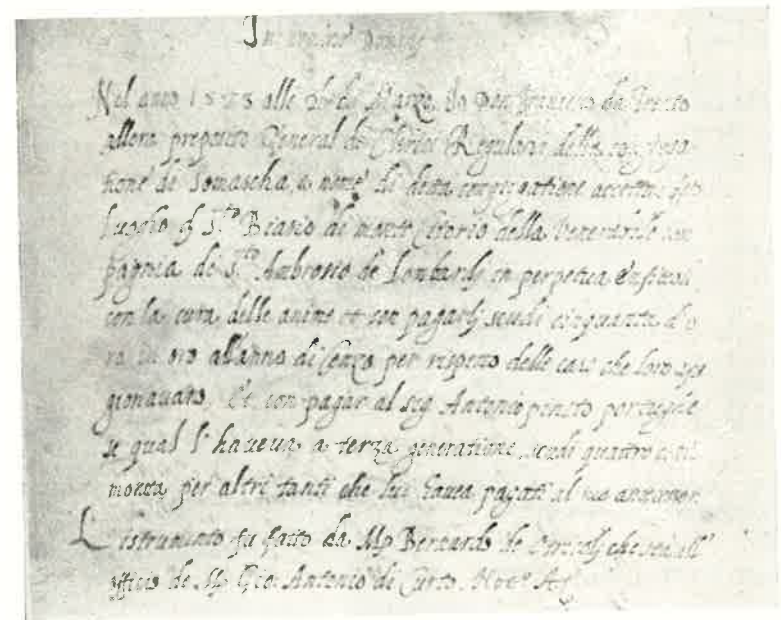 In nomine Domini
Nel anno 1573 alle 26 di Marzo Io Don Francesco da Trento
allora preposito General de Chierici Regulari della congrega
tione de Somascha, a nome di detta congregatione accettai
luogho di S.to Biasio de monte Citorio della Venerabile com
pagnia di S.to Ambrosio de Lombardi in perpetua
con la cura delle anime et con pagarli scudi cinquanta d'o
ro in oro all'anno di Cenzo per rispetto delle case che loro
gionavano. Et con pagar al sig Antonio pineto portughe
se qual l'haveva a terza generatione, scudi quattro
moneta per altri tanti che lui havea pagati al suo
L'istrumento fu fatto da Mp Bernardo de che sta all'
officio de Mp Gio: Antonio di Curto